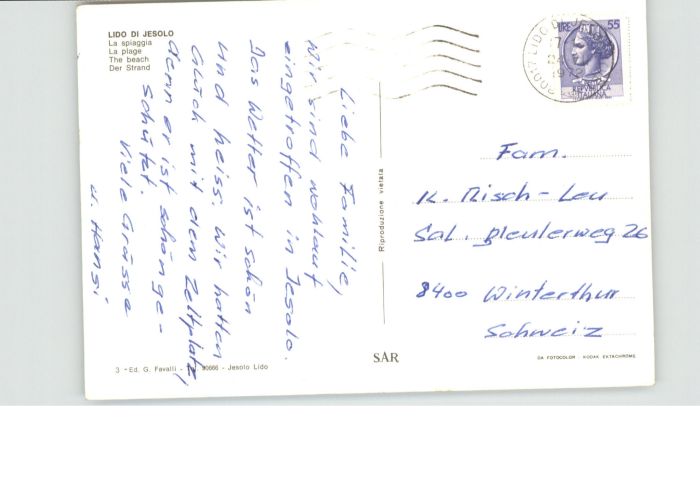 LIDO DI JESOLO
La spiaggia
La plage
The beach
Der Strand
Liebe Familie,
Wir sind wohlauf
eingetroffen in Jesolo.
Das Wetter ist schön
und heiss. Wir hatten
Glück mit dem Zeltplatz,
denn er ist schön ge-
schützt.
Viele Grüsse
u. Hansi
Riproduzione vietata
LIRE 55
LIDO DI
REPVBBLICA
ITALIANA
Fam.
K. Risch-Leu
Sal. Bleulerweg 26
8400 Winterthur
Schweiz
3 - Ed. G. Favalli - 30666 - Jesolo Lido
SAR
GA FOTOCOLOR KODAK EKTACHROME